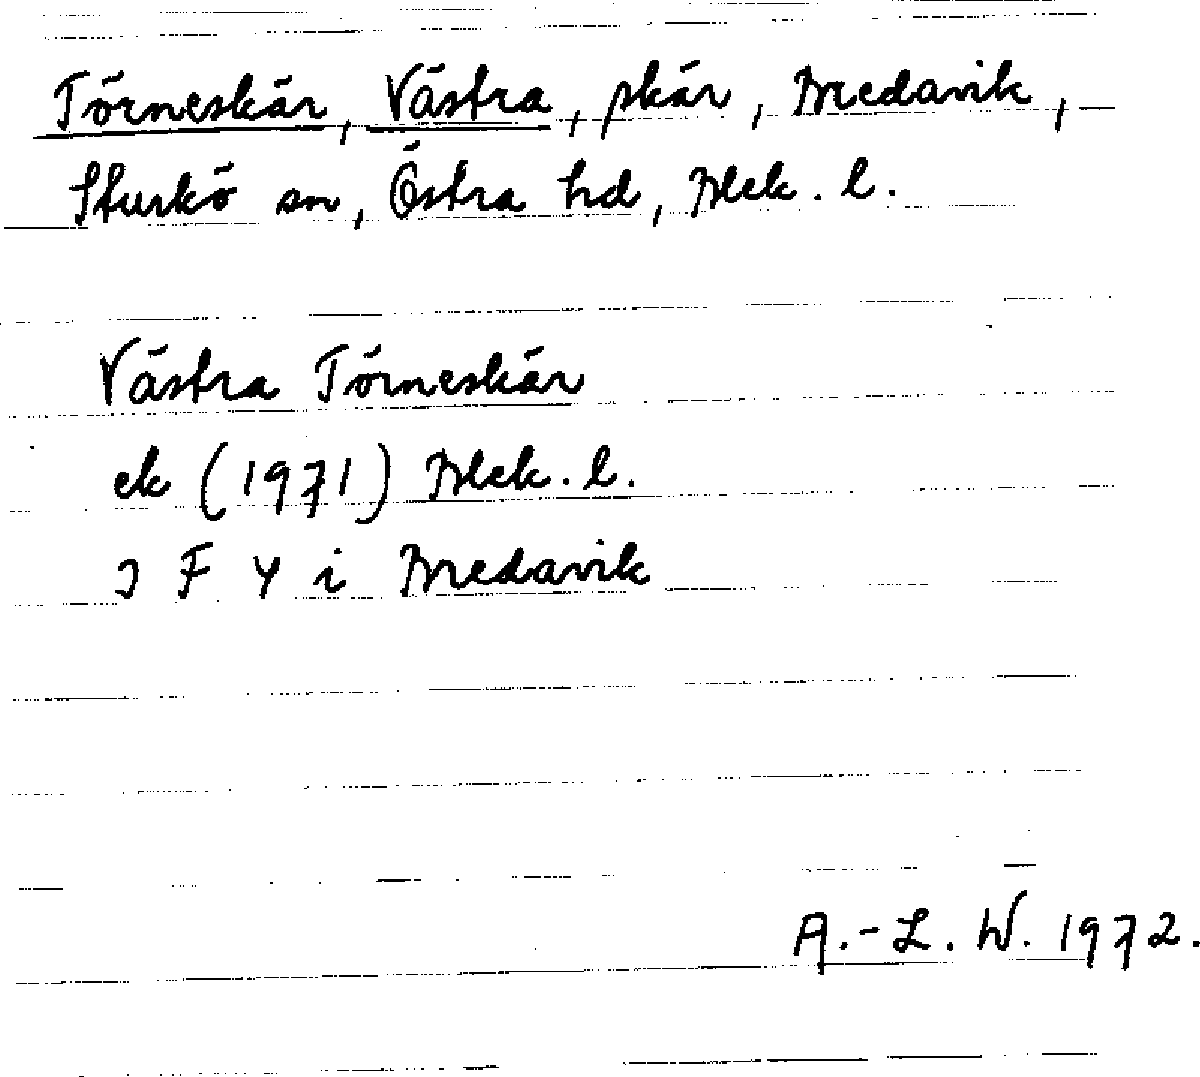 Törneskär, Västra, skär, Bredavik,
Sturkö sn, Östra hd, Blek. l.
Västra Törneskär
ek (1971) Blek. l.
J F Y i Bredavik
A.-L. W. 1972.